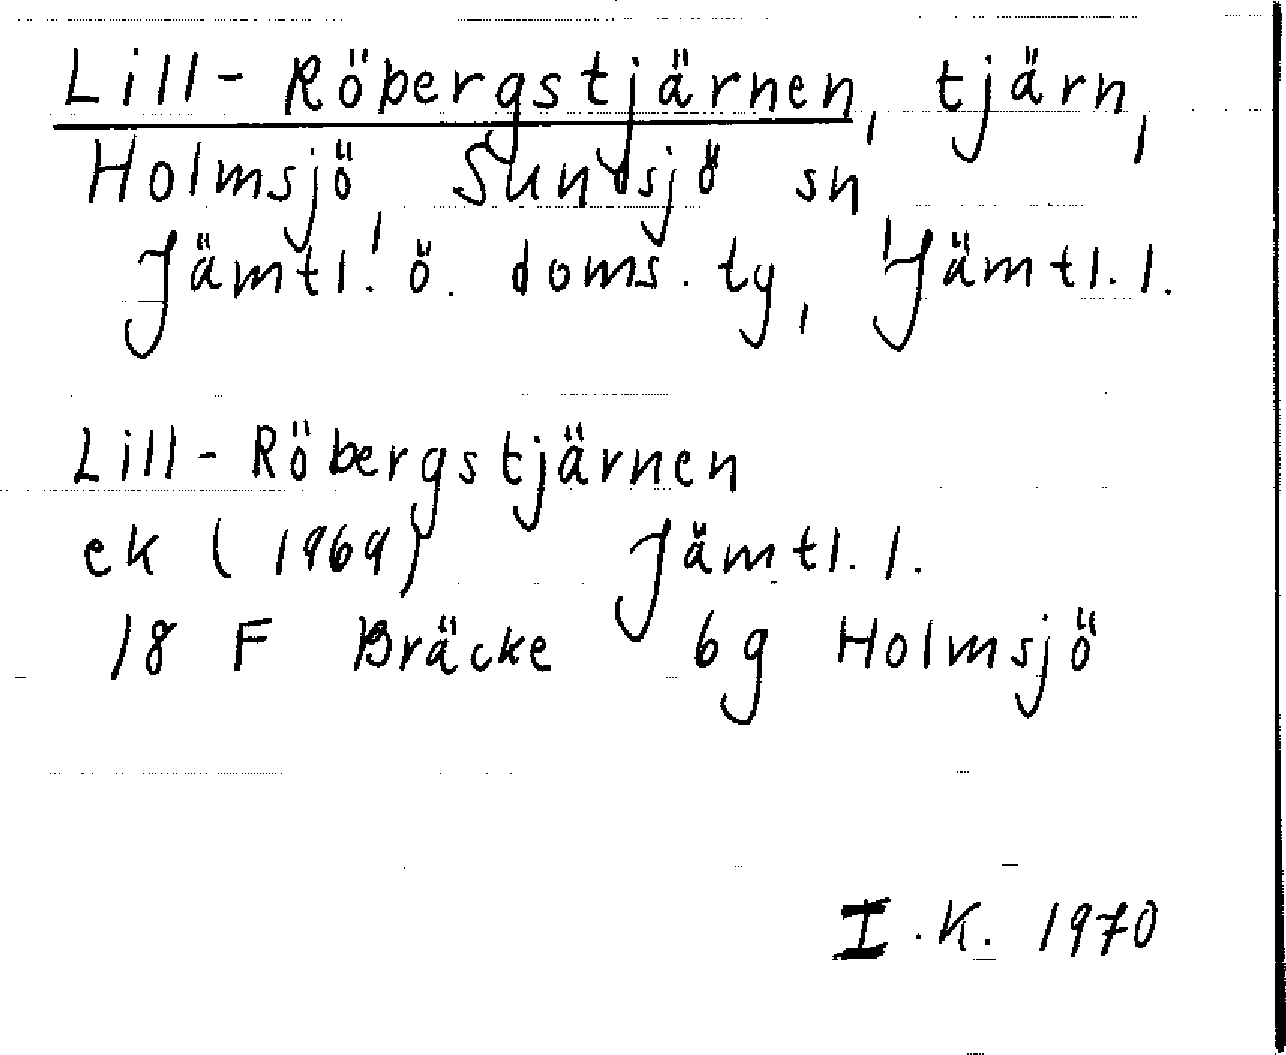 Lill-Röbergstjärnen, tjärn,
Holmsjö, Sundsjö sn,
Jämtl. ö. doms. tg, Jämtl. l.
Lill-Röbergstjärnen
ek (1969) Jämtl. l.
18 F Bräcke 6g Holmsjö
I.K. 1970